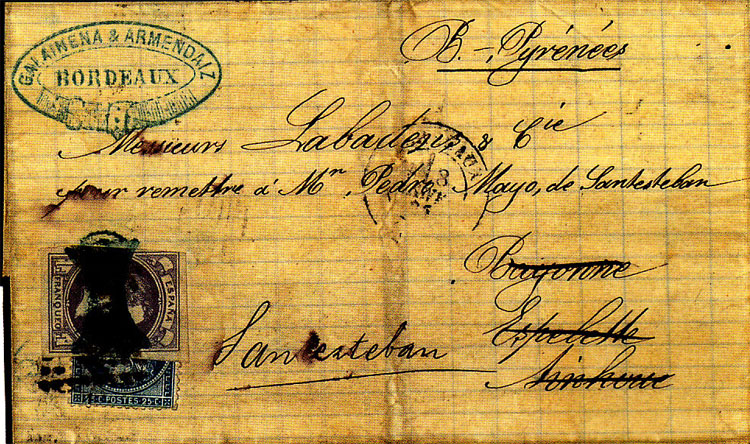 GALAINENA & ARMENDAIZ
BORDEAUX
B.-Pyrénées
Messieurs Labadens & Cie
pour remettre à Mr. Pedro Mayo, de Santesteban
Bayonne
Espelette
Ainhoue
Santesteban
FRANQUEO
ESPAÑA
POSTES 25 C